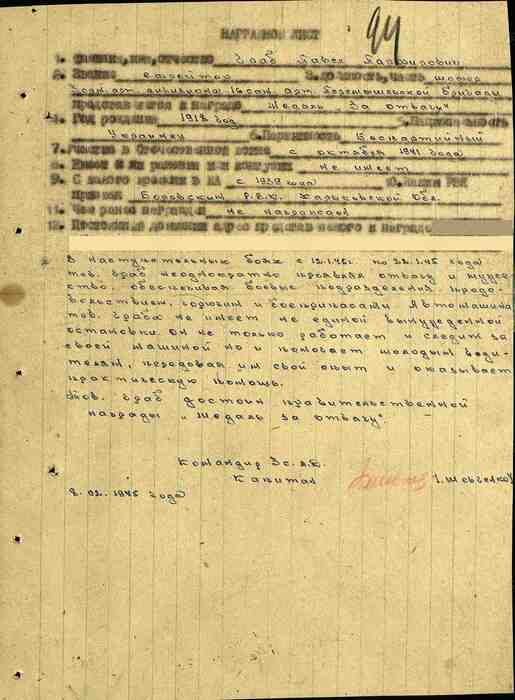 94
НАГРАДНОЙ ЛИСТ
1. Фамилия, имя, отчество Граб Павел
2. Звание ефрейтор 3. должность, часть шофер
арт. дивизиона 16 сам. арт. Перемышльской бригады
Представляется к награде Медаль "За отвагу"
4. Год рождения 1918 год 5. Национальность
Украинец 6. Партийность Беспартийный
7. Участие в Отечественной войне с октября 1941 года
8. Имеет ли ранения или контузии не имеет
9. С какого времени в КА с 1939 года 10. Каким РВК
Призван Боровским Р.В.К. Харьковской обл.
11. Чем ранее награжден не награжден
12. Постоянный домашний адрес представляемого к награде
В наступательных боях с 12.1.45г. по 28.1.45 года
тов. Граб неоднократно проявлял отвагу и муже-
ство, обеспечивая боевые подразделения продо-
вольствием, горючим и боеприпасами Автомашина
тов. Граба не имеет не единой вынужденной
остановки. Он не только работает и следит за
своей машиной но и помогает молодым води-
телям, передовая им свой опыт и оказывает
практическую помощь.
Тов. Граб достоин правительственной
награды "Медаль за отвагу".
Командир 3 с.А.Б.
Капитан /Шевченко/
8.02.1945 года